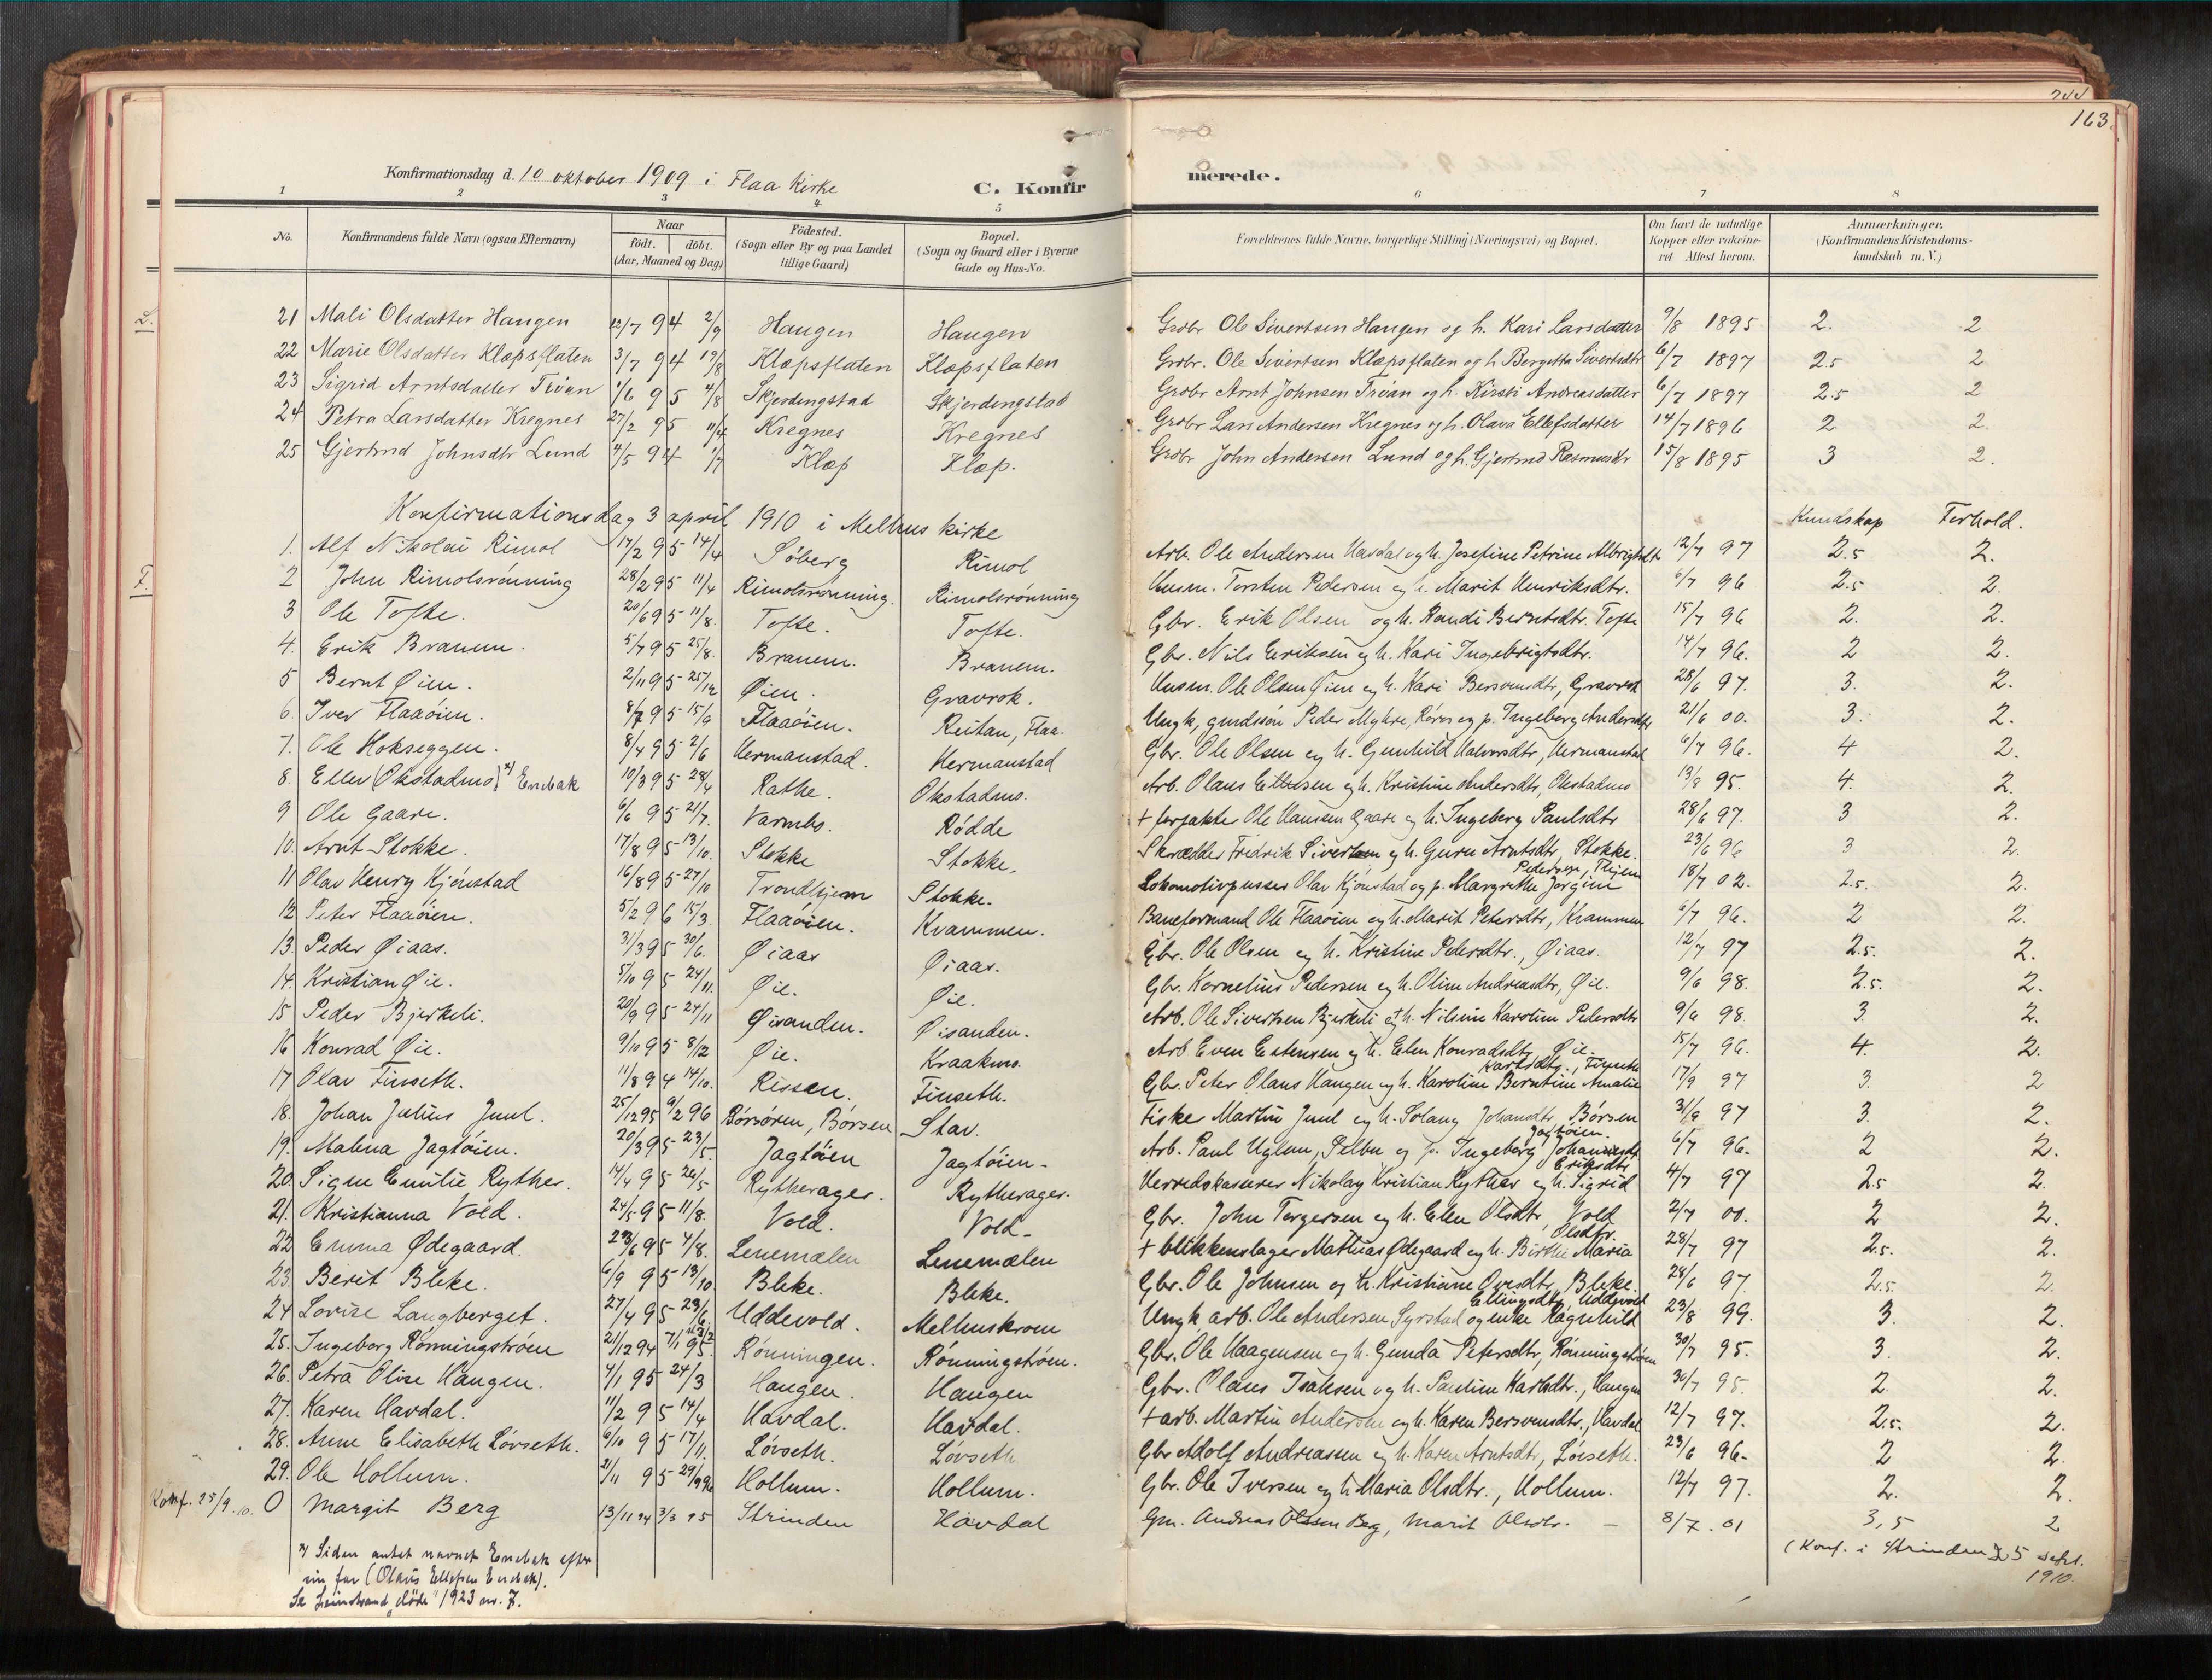 244
163.
Konfirmationsdag d. 10 oktober 1909 i Flaa Kirke C. Konfirmerede.
1 2 3 4 5 6 7 8
No. Konfirmandens fulde Navn (ogsaa Efternavn) Naar født. døbt. (Aar, Maaned og Dag) Fødested. (Sogn eller By og paa Landet tillige Gaard) Bopæl. (Sogn og Gaard eller i Byerne Gade og Hus-No. Forældrenes fulde Navne, borgerlige Stilling (Næringsvei) og Bopæl. Om havt de naturlige Kopper eller vakcineret Attest herom. Anmærkninger. (Konfirmandens Kristendomskundskab m. V.)
L. 21 Mali Olsdatter Haugen 12/7 94 2/9 Haugen Haugen Grdbr Ole Sivertsen Haugen og h. Kari Larsdatter 9/8 1895 2. 2
22 Marie Olsdatter Klæpsflaten 3/7 94 19/8 Klæpsflaten Klæpsflaten Grdbr. Ole Sivertsen Klæpsflaten og h Bergetta Sivertsdtr 6/7 1897 2.5 2
23 Sigrid Arntsdatter Trøan 1/6 95 4/8 Skjerdingstad Skjerdingstad Grdbr Arnt Johnsen Trøan og h. Kirsti Andreasdatter 6/7 1897 2.5 2
24 Petra Larsdatter Kregnes 27/2 95 11/4 Kregnes Kregnes Grdbr Lars Andersen Kregnes og h. Olava Ellefsdatter 14/7 1896 2 2.
25 Gjertrud Johnsdtr Lund 4/5 94 1/7 Klæp Klæp. Grdbr John Andersen Lund og h. Gjertrud Rasmusdtr 15/8 1895 3 2.
Konfirmationsdag 3 april 1910 i Melhus kirke Kundskap Forhold.
1. Alf Nikolai Rimol 17/2 95 14/4 Søberg Rimol Arb. Ole Andersen Havdal og h. Josefine Petrine Albrigtsdtr 12/7 97 2.5 2.
F. 2 John Rimolsrønning 28/2 95 11/4 Rimolsrønning. Rimolsrønning Husm. Torsten Pedersen og h. Marit Henriksdtr. 6/7 96 2.5 2.
3 Ole Tofte. 20/6 95 11/8. Tofte. Tofte. Gbr. Erik Olsen og h. Randi Berntsdtr. Tofte 15/7 96 2. 2.
4. Erik Branem. 5/7 95 25/8. Branem. Branem. Gbr. Nils Eriksen og h. Kari Ingebrigtsdtr. 14/7 96. 2 2.
5 Bernt Øien. 2/11 95 25/12 Øien. Gravrok. Husm. Ole Olsen Øien og h. Kari Bersvensdtr, Gravrok 28/6 97. 3. 2.
6. Iver Flaaøien. 8/7 95 15/9 Flaaøien. Reitan, Flaa. Ungk, gmdssøn Peder Myhre, Røros og p. Ingeborg Andersdtr 21/6 00. 3. 2.
7. Ole Hokseggen. 8/4 95 2/6 Hermanstad. Hermanstad Gbr. Ole Olsen og h. Gunhild Halvorsdtr, Hermanstad 6/7 96. 4 2.
8. Ellev (Okstadmo) x) Enebak 10/3 95 28/4 Rathe. Okstadmo. Arb. Olaus Ellevsen og h. Kristine Andersdtr, Okstadmo 13/8 95. 4. 2.
9 Ole Gaare. 6/6 95 21/7. Varmbo. Rødde + forpakter Ole Hanssen Gaare og h. Ingeborg Paulsdtr 28/6 97. 3 2.
10. Arnt Stokke. 17/8 95 13/10. Stokke Stokke. Skrædder Fredrik Sivertsen og h. Guru Arntsdtr, Stokke. 23/6 96 3 2.
11 Olav Henry Kjønstad 16/8 95 27/10 Trondhjem Stokke. Lokomotivpusser Olav Kjønstad og p. Margrethe Jørgine Pedersen, Thjem 18/7 02. 2.5. 2.
12 Peter Flaaøien. 5/2 96 15/3. Flaaøien. Kvammen. Baneformand Ole Flaaøien og h. Marit Petersdtr, Kvammen 6/7 96. 2 2.
13. Peder Øiaas. 31/3 95 30/6. Øiaas Øiaas. Gbr. Ole Olsen og h. Kristine Pedersdtr., Øiaas. 12/7 97 2.5. 2.
14. Kristian Øie. 5/10 95 24/11. Øie. Øie. Gbr. Kornelius Pedersen og h. Oline Andreasdtr, Øie. 9/6 98. 2.5. 2.
15 Peder Bjerkeli. 20/9 95 24/11 Øisanden. Øisanden. Arb. Ole Sivertsen Bjerkeli og h. Nilsine Karoline Pedersdtr 9/6 98. 3. 2.
16 Konrad Øie. 9/10 95 8/12 Øie. Kraakmo. Arb Even Estensen og h. Elen Konradsdtr, Øie. 15/7 96. 4. 2.
17 Olav Finseth. 11/8 94 14/10. Rissen. Finseth. Gbr. Peter Olaus Haugen og h. Karoline Berntine Amalie Karlsdtr., Finseth 17/9 97 3. 2
18. Johan Julius Juul. 25/12 95 9/2 96 Børsøren, Børsen Stav. Fisker Martin Juul og h. Solang Johansdtr, Børsen 31/8 97 3. 2.
19. Malena Jagtøien. 20/3 95 23/5. Jagtøien Jagtøien. Arb. Paul Uglem, Selbu og p. Ingeborg Johannesdtr Jagtøien. 6/7 96. 2 2.
20. Signe Emilie Ryther. 14/4 95 26/5 Rytherager. Rytherager. Herredskasserer Nikolay Kristian Ryther og h. Sigrid Eriksdtr 4/7 97 2.5 2.
21. Kristianna Vold. 24/5 95 11/8. Vold. Vold. Gbr. John Torgersen og h. Elen Olsdtr, Vold 2/7 00. 2 2.
22 Emma Ødegaard. 23/6 95 4/8. Lenemælen Lenemælen + blikkenslager Mathias Ødegaard og h. Birthe Maria Olsdtr. 28/7 97 2.5. 2.
23. Berit Bleke. 6/9 95 13/10. Bleke. Bleke. Gbr. Ole Johnsen og h. Kristiane Ovesdtr, Bleke. 28/6 97. 2.5. 2.
24 Lovise Langberget. 27/4 95 23/6. Uddevold. Melhuskroen Ungk arb. Ole Andersen Syrstad og enke Ragnhild Ellingsdtr, Uddevold 23/8 99. 3. 2.
25. Ingeborg Rønningstrøen 21/12 94 7/1 95. Rønningen. Rønningstrøen. Gbr. Ole Haagensen og h. Gunda Petersdtr, Rønningstrøen 30/7 95. 3. 2.
26. Petra Olise Haugen. 4/1 95 24/3 Haugen. Haugen Gbr. Olaus Isaksen og h. Pauline Karlsdtr., Haugen 30/7 95. 2. 2.
27. Karen Havdal. 11/2 95 14/4 Havdal. Havdal. + arb. Martin Andersen og h. Karen Bersvensdtr., Havdal 12/7 97. 2.5. 2.
28. Anne Elisabeth Løvseth. 6/10 95 17/11. Løvseth. Løvseth Gbr Adolf Andreassen og h. Karen Arntsdtr, Løvseth. 23/6 96. 2 2.
29. Ole Hollum. 2/11 95 29/9 96 Hollum. Hollum. Gbr. Ole Iversen og h Maria Olsdtr., Hollum. 12/7 97. 2. 2.
Konf. 25/9. 10. 0 Margit Berg 13/11 94 3/3 95 Strinden Havdal Gm. Andreas Olssen Berg, Marit Olsdtr. — 8/7. 01 3,5 2
(Konf. i Strinden 25 sept. 1910.
x) Siden antat navnet Enebak efter
sin far (Olaus Ellefsen Enebak).
Se Leinstrand „døde" 1923 nr. 7.